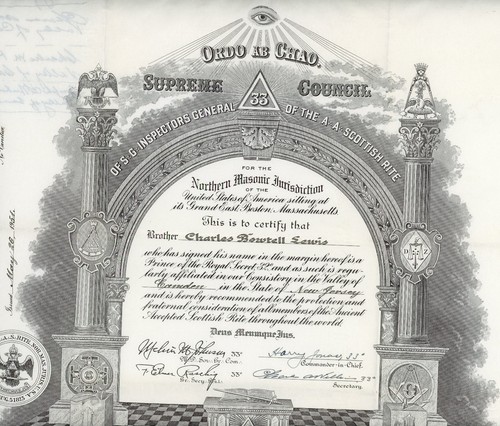 ORDO AB CHAO.
SUPREME COUNCIL
33
OF S. G. INSPECTORS GENERAL OF THE A. A. SCOTTISH RITE
FOR THE
Northern Masonic Jurisdiction
OF THE
United States of America sitting at
its Grand East, Boston, Massachusetts
This is to certify that
Brother Charles Bowtell Lewis
who has signed his name in the margin hereof is a
Prince of the Royal Secret 32° and as such is regu-
larly affiliated in our Consistory in the Valley of
Camden in the State of New Jersey
and is hereby recommended to the protection and
fraternal consideration of all members of the Ancient
Accepted Scottish Rite throughout the world.
Deus Meumque Jus.
33°
Sov. Gr. Com.
33°
Commander-in-Chief.
33°
Gr. Secy. Gen.
33°
Secretary.